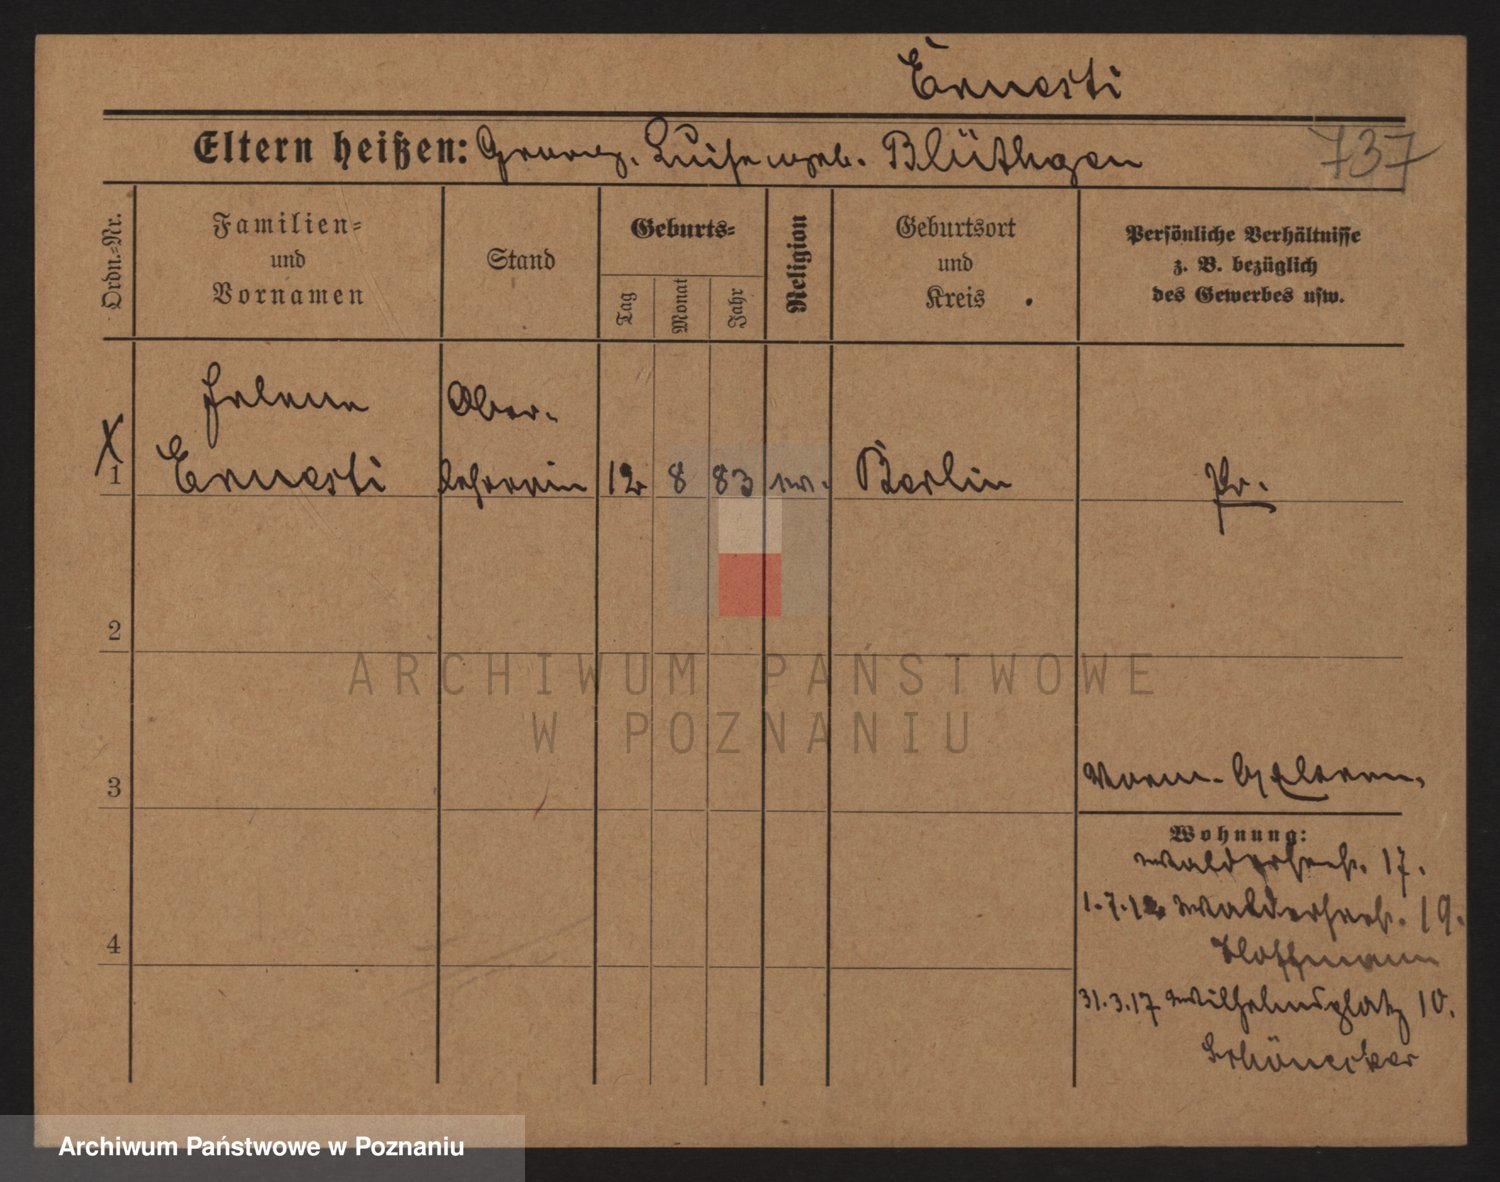 Ernesti
Eltern heißen: Georg. Luise geb. Blüthgen
737
Ordn.-Nr.
Familien-
und
Vornamen
Stand
Geburts-
Tag
Monat
Jahr
Religion
Geburtsort
und
Kreis
Persönliche Verhältnisse
z. B. bezüglich
des Gewerbes usw.
Helene Ober-
X
1 Ernesti lehrerin 12 8 83 ev. Berlin Pr.
2
3
Eltern.
Wohnung:
Waldersees. 17.
1.7.12 Waldersees. 19.
Hoffmann
4
31.3.17 Wilhelmsplatz 10.
Schönecker
ARCHIWUM PAŃSTWOWE
W POZNANIU
Archiwum Państwowe w Poznaniu